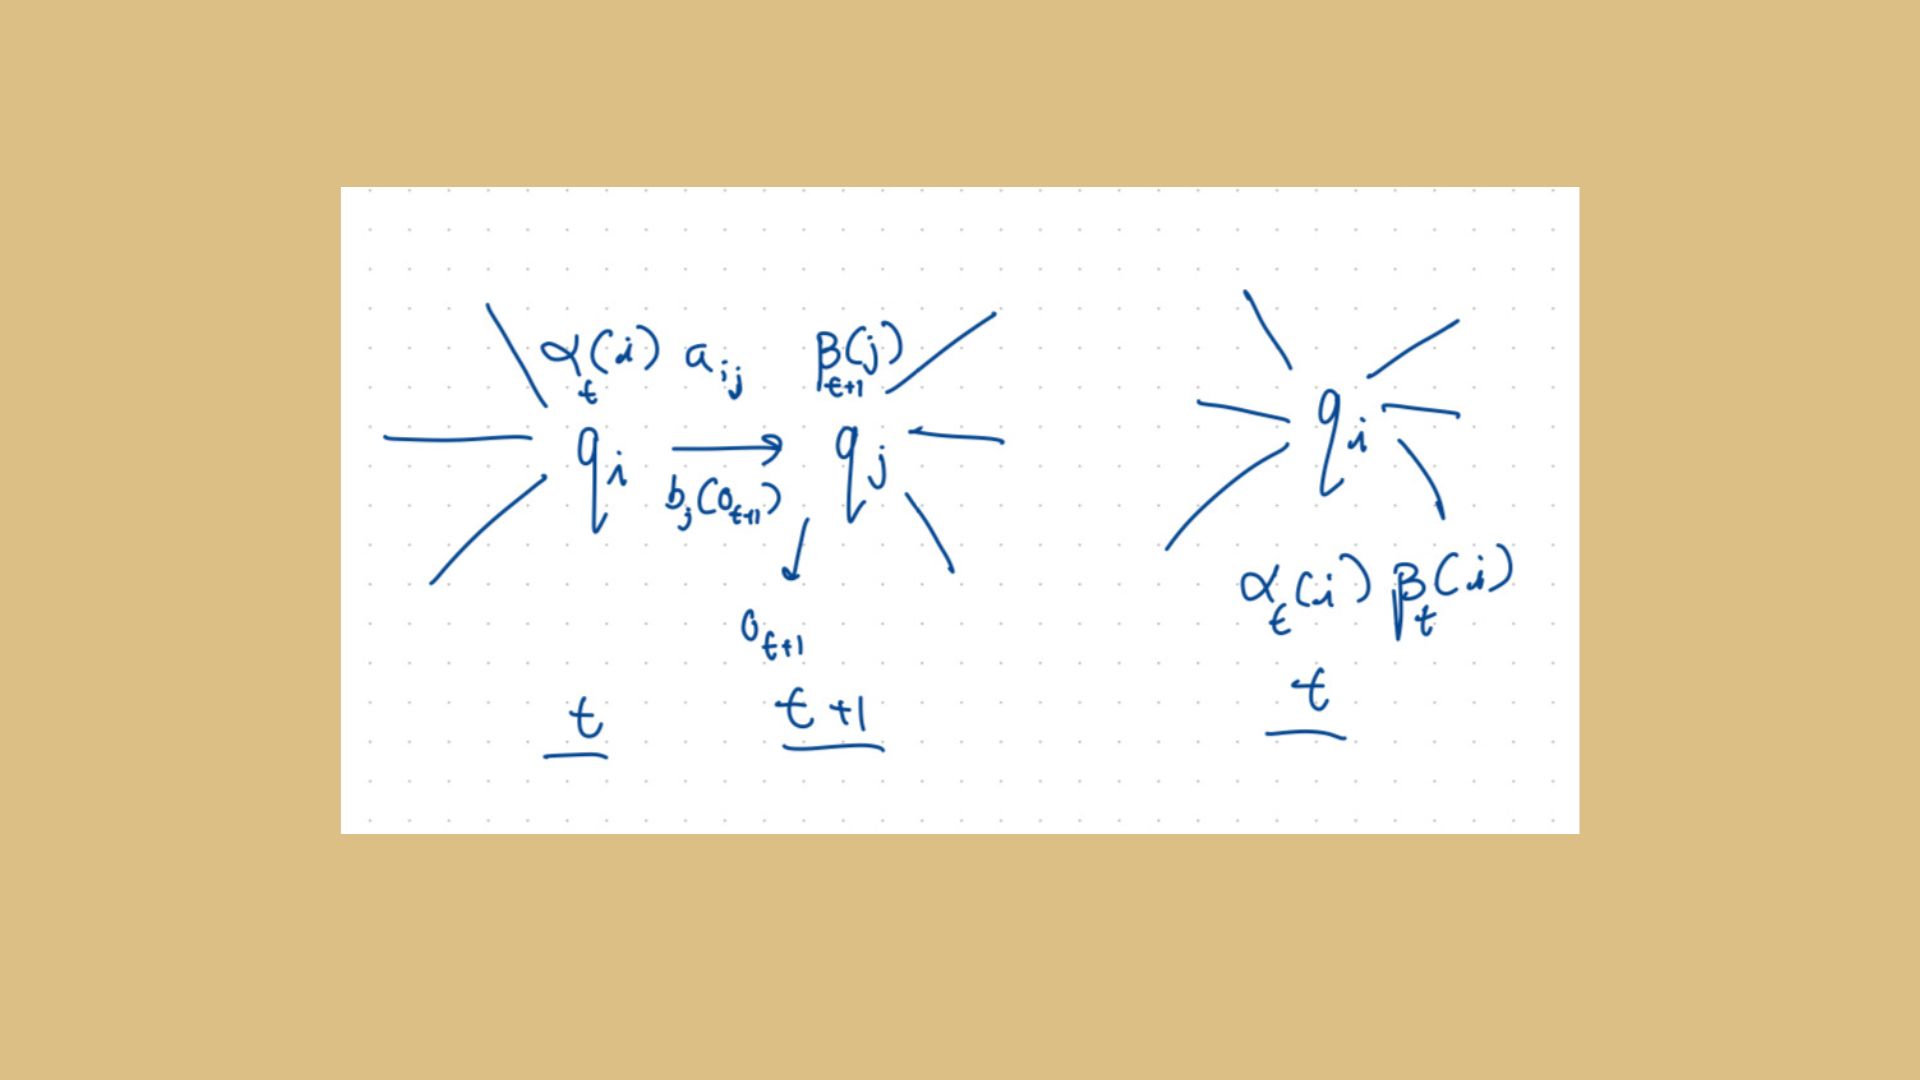 αₜ(i) aᵢⱼ βₜ₊₁(j)
qᵢ → qⱼ
bⱼ(oₜ₊₁)
oₜ₊₁
t t+1
qᵢ
αₜ(i) βₜ(i)
t